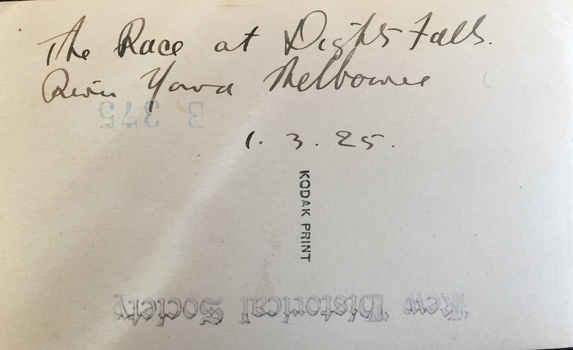 The Race at Dights Falls.
River Yarra Melbourne
B 375
1. 3. 25.
KODAK PRINT
Kew Historical Society